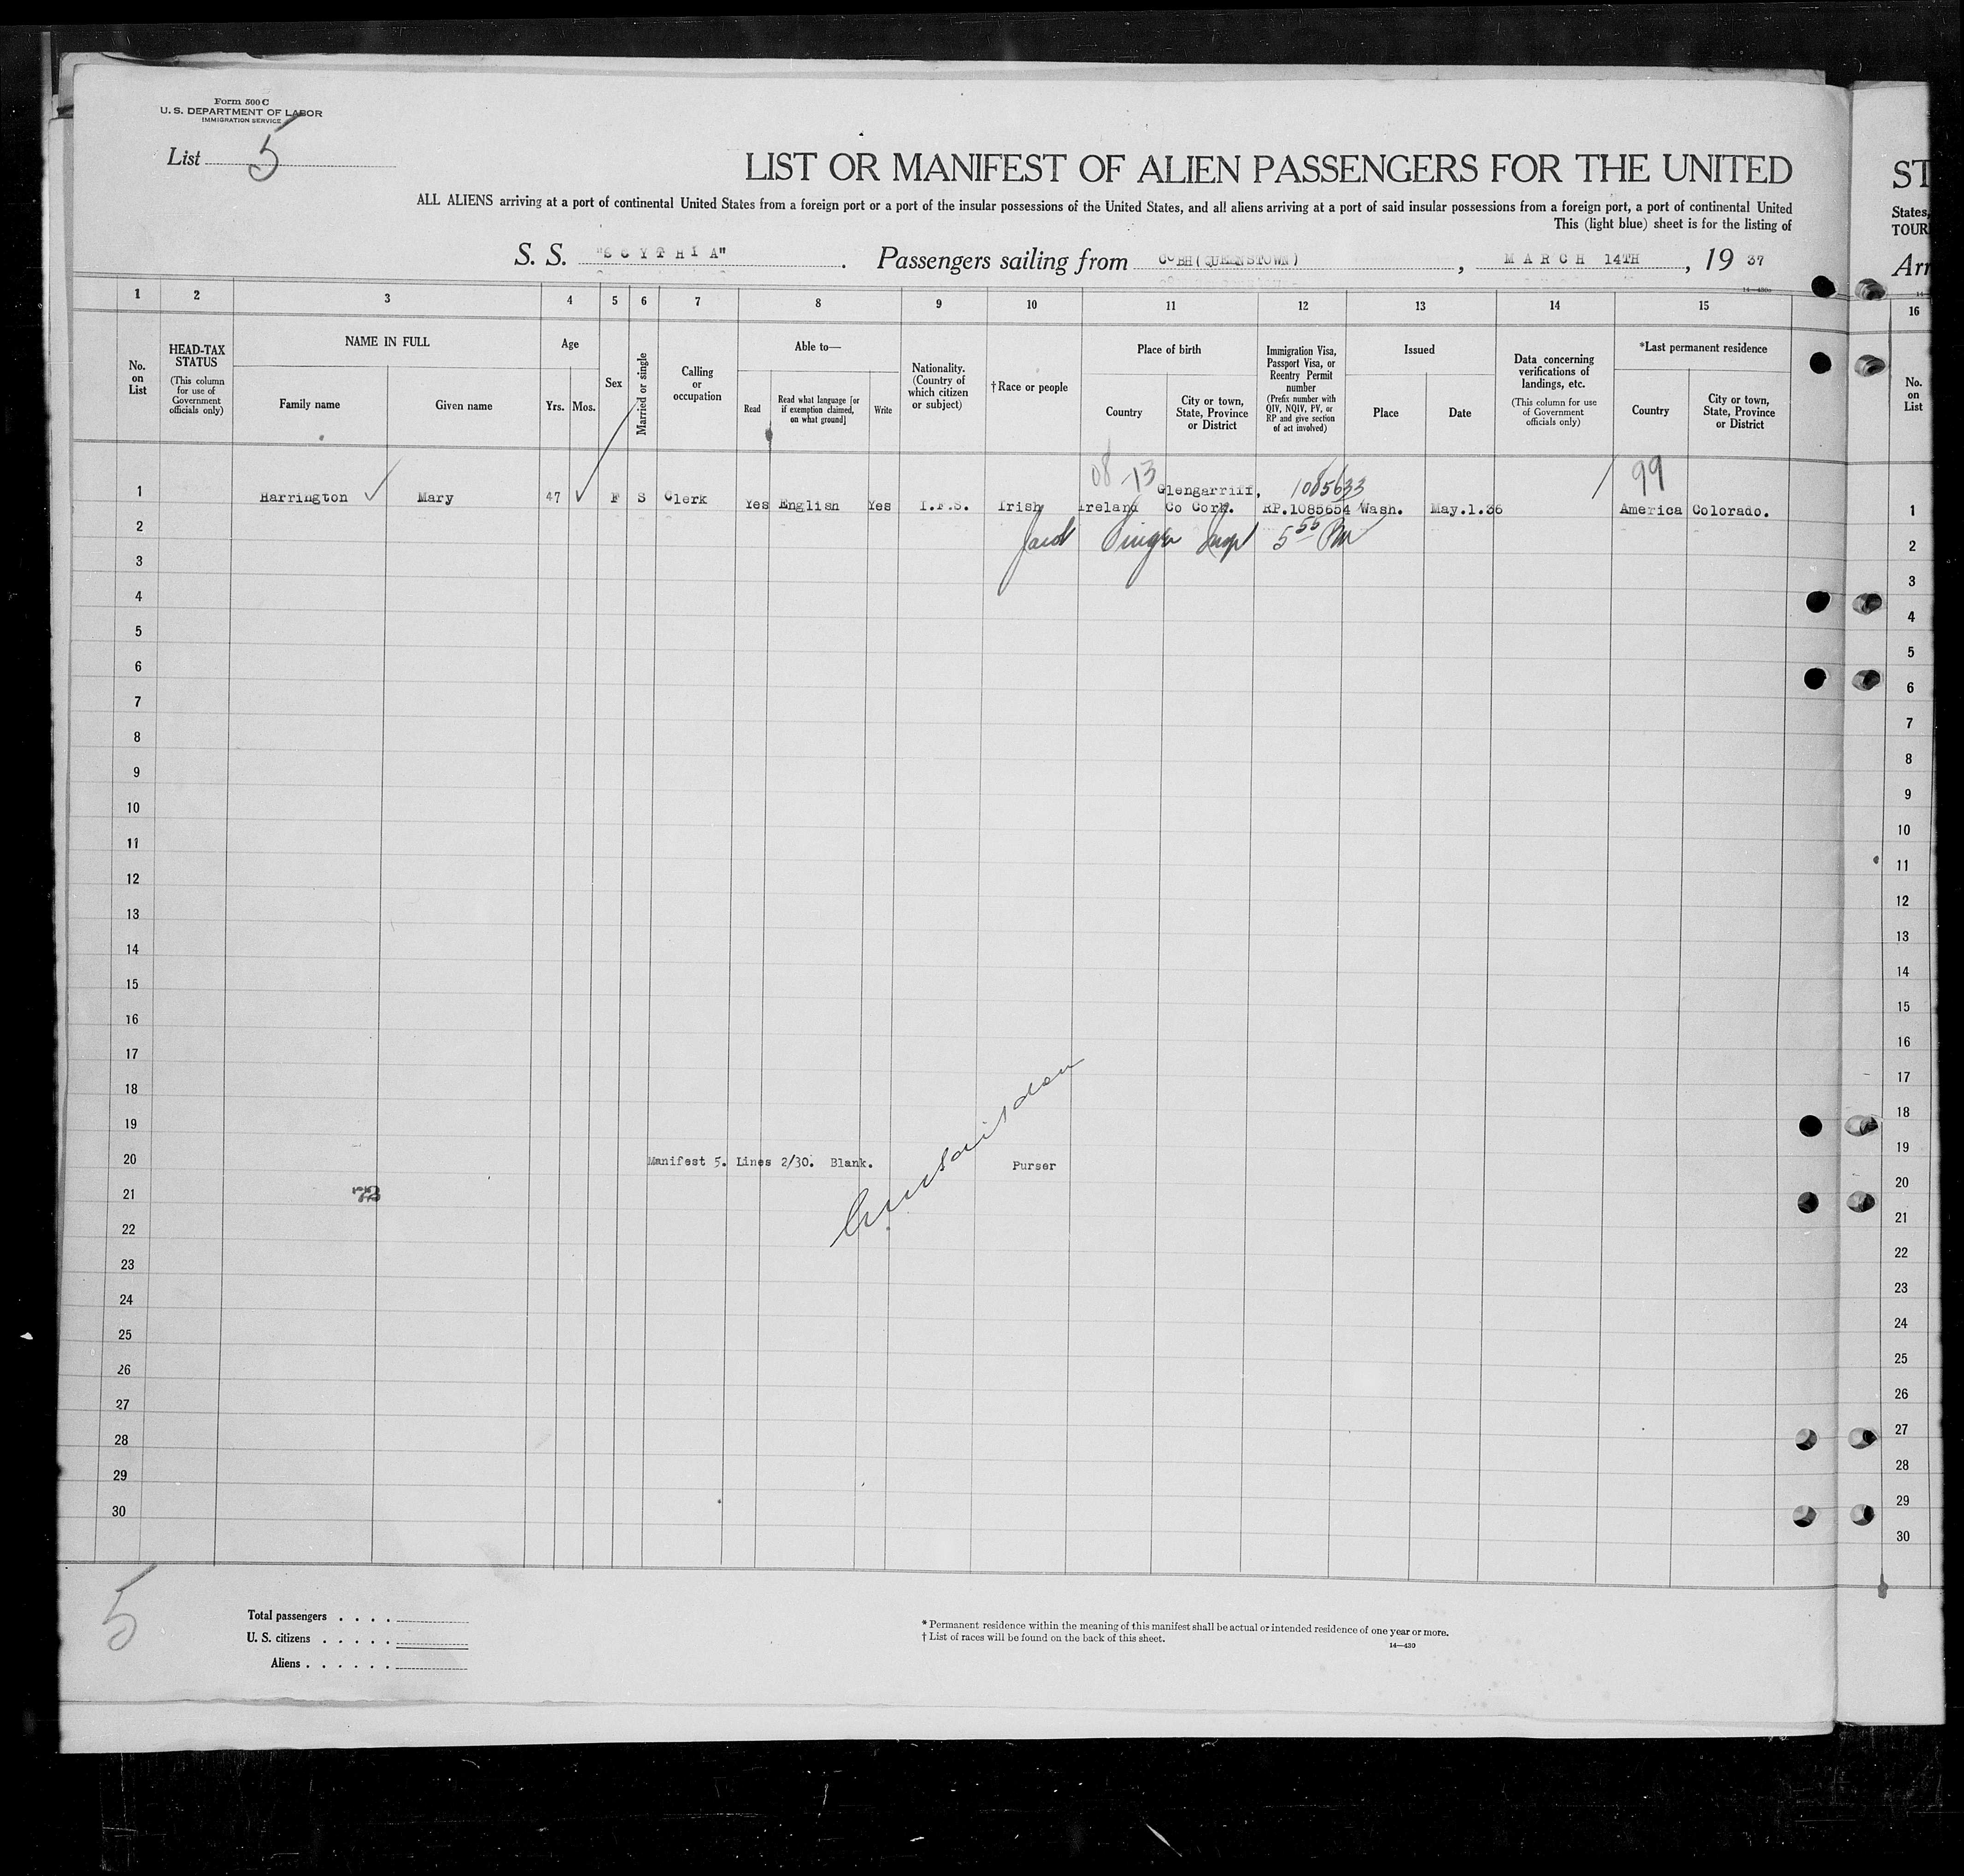 Form 500 C
U. S. DEPARTMENT OF LABOR
IMMIGRATION SERVICE
List 5
LIST OR MANIFEST OF ALIEN PASSENGERS FOR THE UNITED
ST
ALL ALIENS arriving at a port of continental United States from a foreign port or a port of the insular possessions of the United States, and all aliens arriving at a port of said insular possessions from a foreign port, a port of continental United
States,
This (light blue) sheet is for the listing of
TOUR
S. S. "SCYTHIA". Passengers sailing from COBH (QUEENSTOWN), MARCH 14TH, 19 37
Arr
14—430a
1 2 3 4 5 6 7 8 9 10 11 12 13 14 15
16
No. on List
HEAD-TAX STATUS
(This column for use of Government officials only)
NAME IN FULL
Family name
Given name
Age
Yrs. Mos.
Sex
Married or single
Calling or occupation
Able to—
Read
Read what language [or if exemption claimed, on what ground]
Write
Nationality. (Country of which citizen or subject)
†Race or people
Place of birth
Country
City or town, State, Province or District
Immigration Visa, Passport Visa, or Reentry Permit number
(Prefix number with QIV, NQIV, PV, or RP and give section of act involved)
Issued
Place
Date
Data concerning verifications of landings, etc.
(This column for use of Government officials only)
*Last permanent residence
Country
City or town, State, Province or District
No. on List
08-13 1085633 99
1 Harrington Mary 47 F S Clerk Yes English Yes I.F.S. Irish Ireland Glengarriff, Co Cork. RP.1085654 Wash. May.1.36 America Colorado. 1
2 5 55 PM 2
3 3
4 4
5 5
6 6
7 7
8 8
9 9
10 10
11 11
12 12
13 13
14 14
15 15
16 16
17 17
18 18
19 19
20 Manifest 5. Lines 2/30. Blank. Purser 20
21 21
22 22
23 23
24 24
25 25
26 26
27 27
28 28
29 29
30 30
5
Total passengers . . . .
U. S. citizens . . . . .
Aliens . . . . . .
* Permanent residence within the meaning of this manifest shall be actual or intended residence of one year or more.
† List of races will be found on the back of this sheet.
14—430